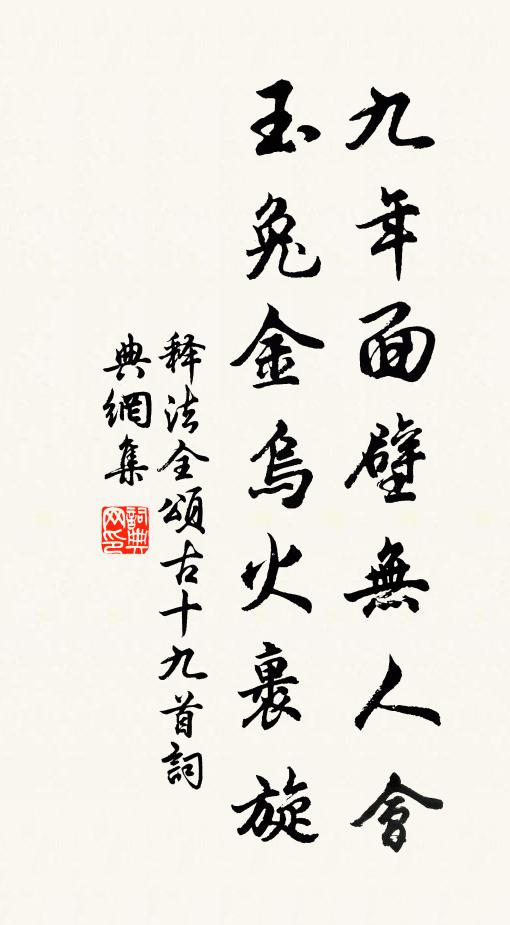 九年面壁無人會
玉兔金烏火裹旋
释法全頌古十九首詞
典網集
詞典
网印